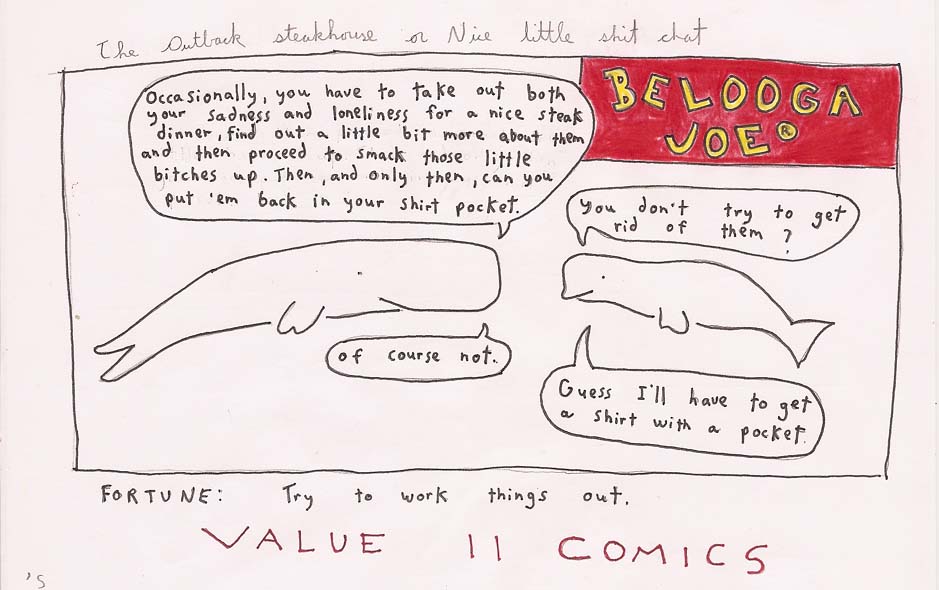 The Outback steakhouse or Nice little shit chat
BELOOGA
JOE®
Occasionally, you have to take out both
your sadness and loneliness for a nice steak
dinner, find out a little bit more about them
and then proceed to smack those little
bitches up. Then, and only then, can you
put 'em back in your shirt pocket.
You don't try to get
rid of them?
of course not.
Guess I'll have to get
a shirt with a pocket.
FORTUNE: Try to work things out.
VALUE 11 COMICS
's